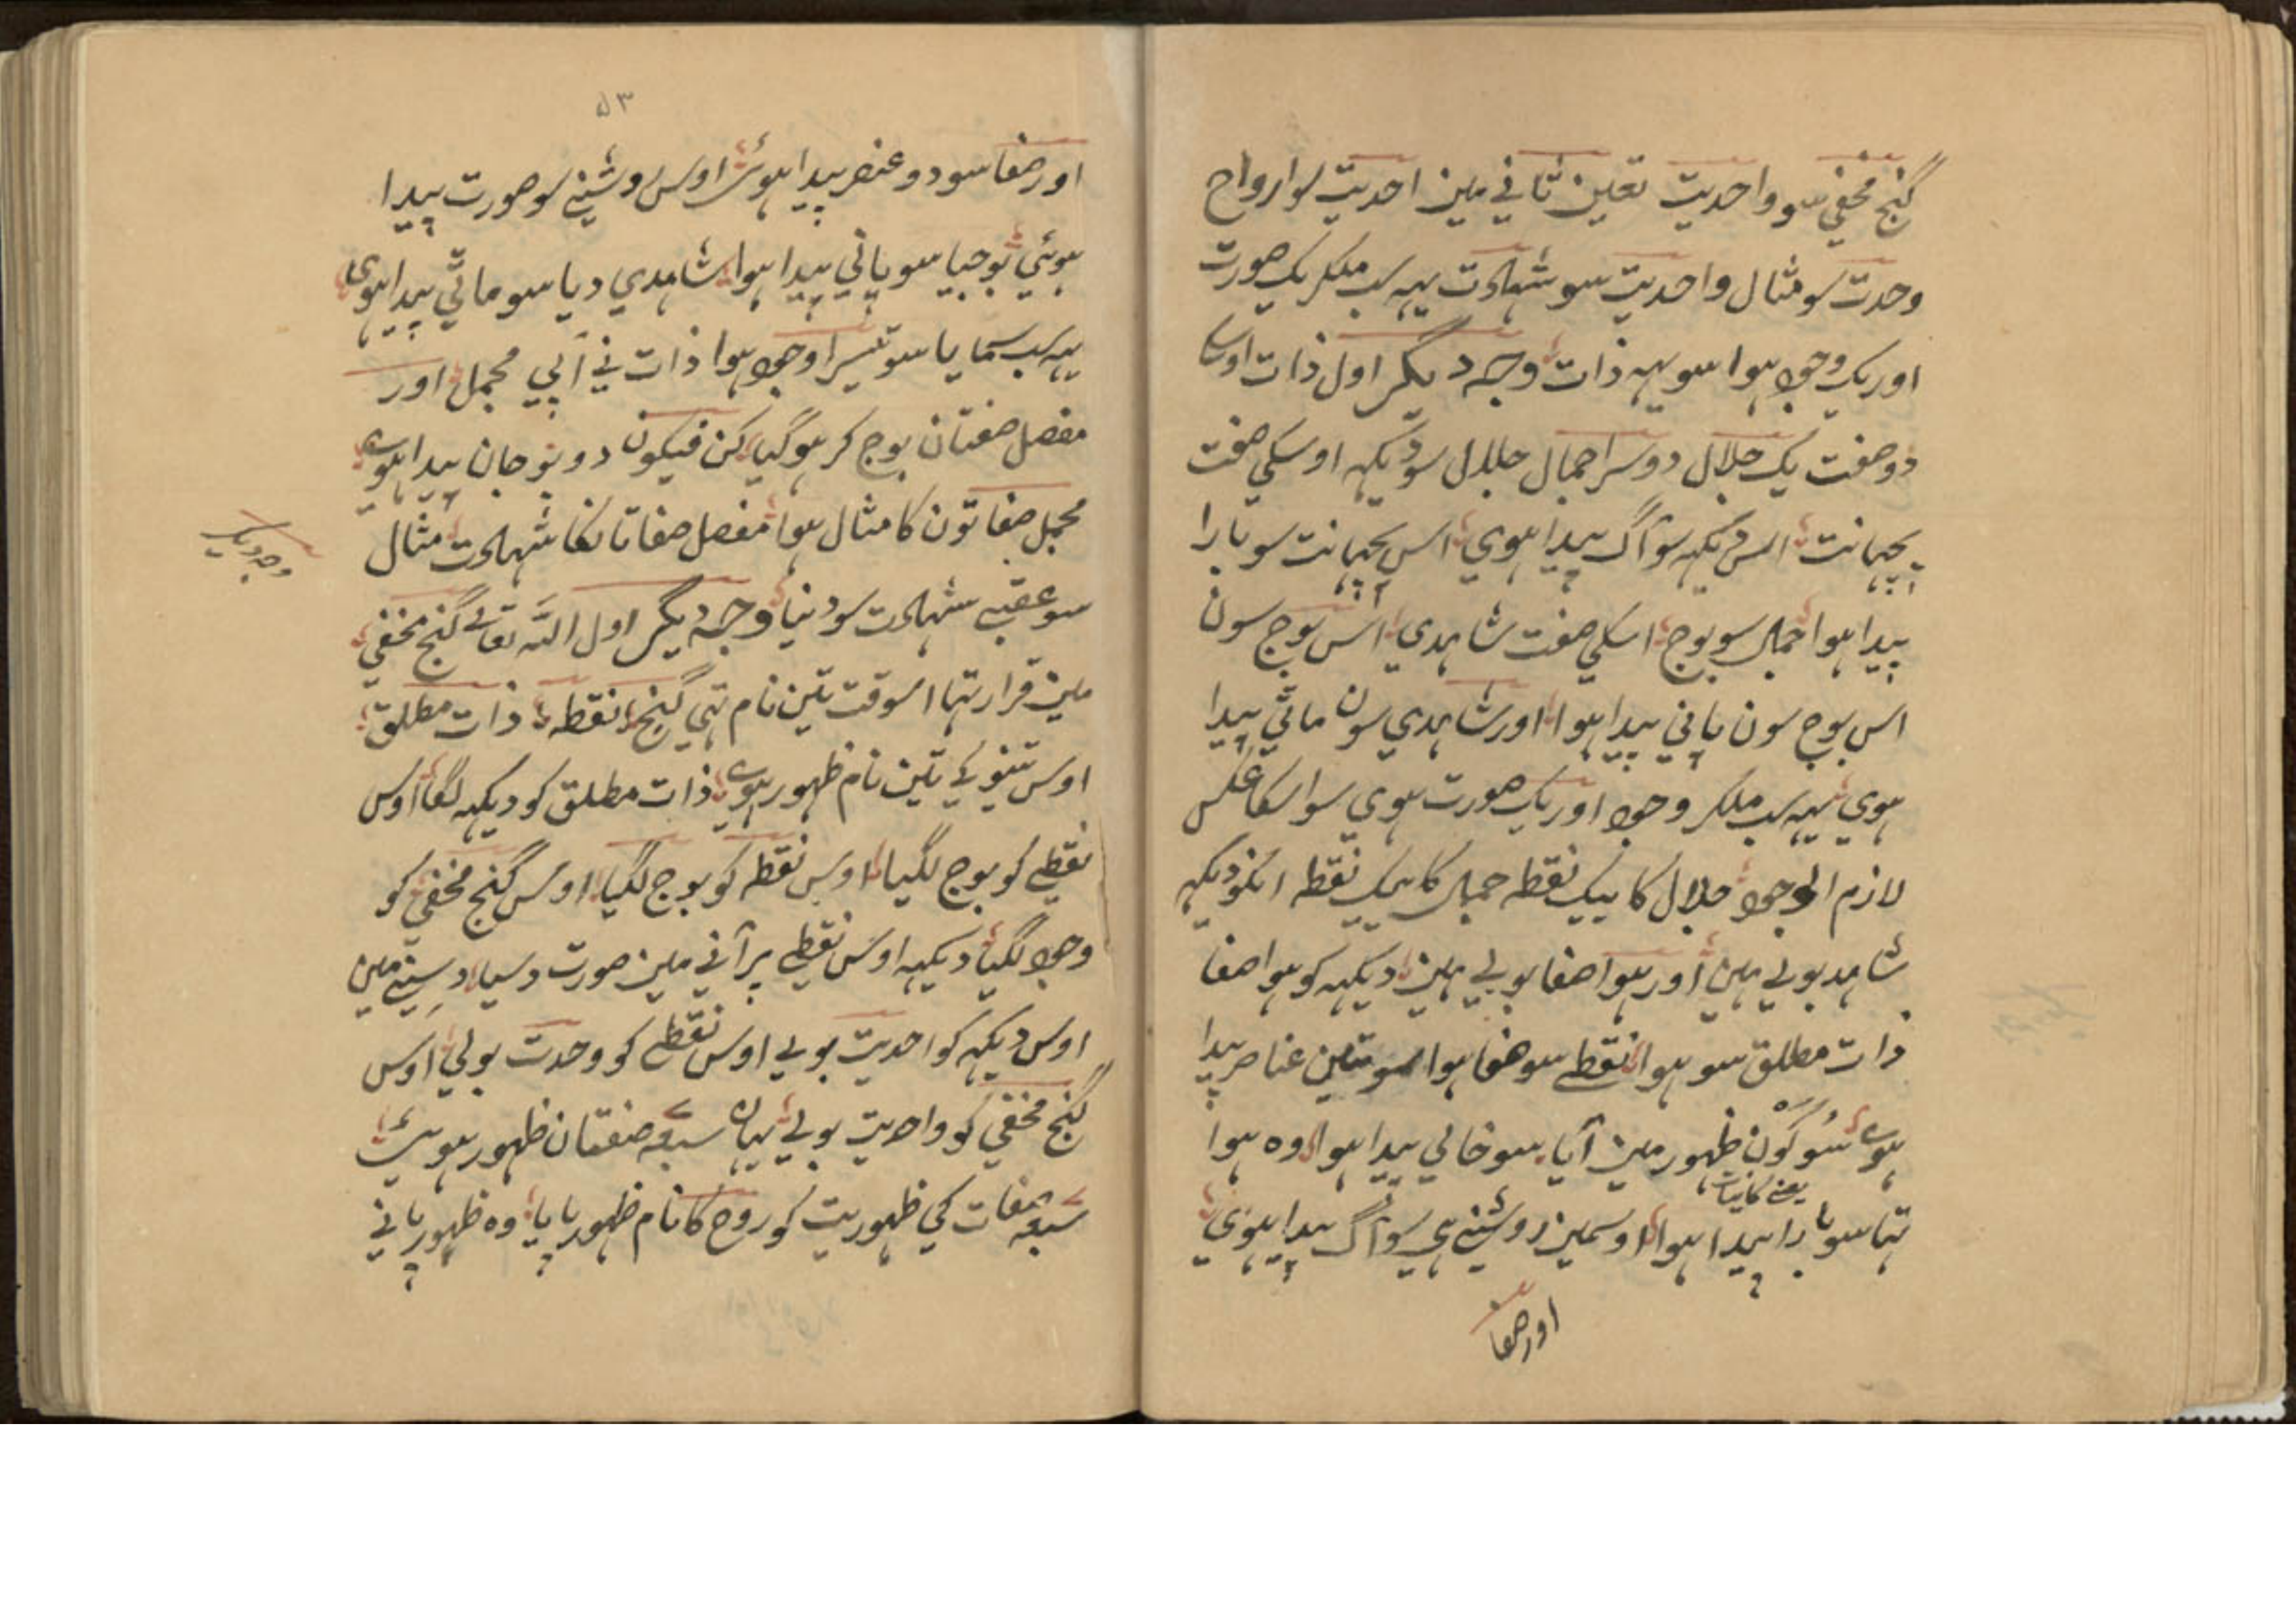 گنج مخفی سو واحدیت تعین ثانی مین احدیت سو ارواح
وحدت سو مثال واحدیت سو شهادت یہہ سب ملکر یک صورت
اور یک وجود ہوا سو یہہ ذات وجہ دیگر اول ذات اوسکا
دو صفت یک جلال دوسرا جمال جلال سو دیکہہ اوسکی صفت
پچہانت اس دیکہہ سو آگ پیدا ہوی اس پچہانت سو بارا
پیدا ہوا جمال سو بوج اسکی صفت شاہدی اس بوج سون
اس بوج سون پانی پیدا ہوا اور شاہدی سون ماٹی پیدا
ہوی یہہ سب ملکر وجود اور یک صورت ہوی سو اسکا عکس
لازم الوجود جلال کا یک نقطہ جمال کا یک نقطہ انکو دیکہہ
شاہد بولی ہین اور ہوا صفا بولی ہین دیکہہ کو ہوا صفا
ذات مطلق سو ہوا نقطے سو صفا ہوا سو تین عناصر پیدا
ہوے سو کون ظہور مین آیا سو خالی پیدا ہوا وہ ہوا
یعنے کاینات
تہا سو بارا پیدا ہوا اوسمین روشنی ہی سو آگ پیدا ہوی
اور صفا
۵۳
اور صفا سو دو عنصر پیدا ہوئے اوس روشنی سو صورت پیدا
ہوئی بوجیا سو پانی پیدا ہوا شاہدی دیا سو ماٹی پیدا ہوی
یہہ سب سمایا سو تیسرا وجود ہوا ذات نی آپی مجمل اور
مفصل صفتان بوج کر ہوگیا کن فیکون دونو جان پیدا ہوے
مجمل صفاتون کا مثال ہوا مفصل صفاتانکا شہادت مثال
وجہ دیگر
سو عقبے شہادت سو دنیا وجہ دیگر اول اللہ تعالے گنج مخفی
مین قرار تہا اسوقت تین نام تہی گنج نقطہ ذات مطلق
اوس تینو کے تین نام ظہور ہوے ذات مطلق کو دیکہہ لگا اوس
نقطے کو بوج لگیا اوس نقطہ کو بوج لگیا اوس گنج مخفی کو
وجود لگیا دیکہہ اوس نقطے پر آنی مین صورت دسیا دسنے مین
اوس دیکہہ کو احدیت بولے اوس نقطے کو وحدت بولی اوس
گنج مخفی کو واحدیت بولے یہان سبعہ صفتان ظہور ہوئے
سبعہ صفات کی ظہوریت کو روح کا نام ظہور پایا وہ ظہور پانی